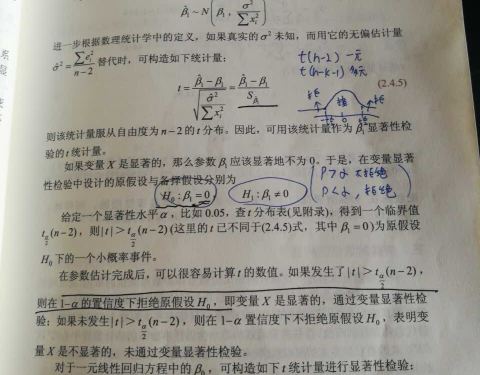 β̂₁ ~ N(β₁, σ²/∑xᵢ²)
进一步根据数理统计学中的定义，如果真实的σ²未知，而用它的无偏估计量
σ̂² = ∑eᵢ²/(n−2) 替代时，可构造如下统计量：
t(n-2) 一元
t(n-k-1) 多元
t = (β̂₁−β₁)/√(σ̂²/∑xᵢ²) = (β̂₁−β₁)/S_β̂₁ (2.4.5)
则该统计量服从自由度为 n−2 的 t 分布。因此，可用该统计量作为β₁显著性检
验的 t 统计量。
如果变量 X 是显著的，那么参数β₁应该显著地不为 0。于是，在变量显著
性检验中设计的原假设与备择假设分别为
P>α 不拒绝
P<α, 拒绝
H₀:β₁=0, H₁:β₁≠0
给定一个显著性水平α，比如 0.05，查 t 分布表(见附录)，得到一个临界值
t_{α/2}(n−2)，则|t|>t_{α/2}(n−2)(这里的 t 已不同于(2.4.5)式，其中β₁=0)为原假设
H₀下的一个小概率事件。
在参数估计完成后，可以很容易计算 t 的数值。如果发生了|t|>t_{α/2}(n−2)，
则在1−α的置信度下拒绝原假设H₀，即变量 X 是显著的，通过变量显著性检
验；如果未发生|t|>t_{α/2}(n−2)，则在1−α置信度下不拒绝原假设H₀，表明变
量 X 是不显著的，未通过变量显著性检验。
对于一元线性回归方程中的β₀，可构造如下 t 统计量进行显著性检验：